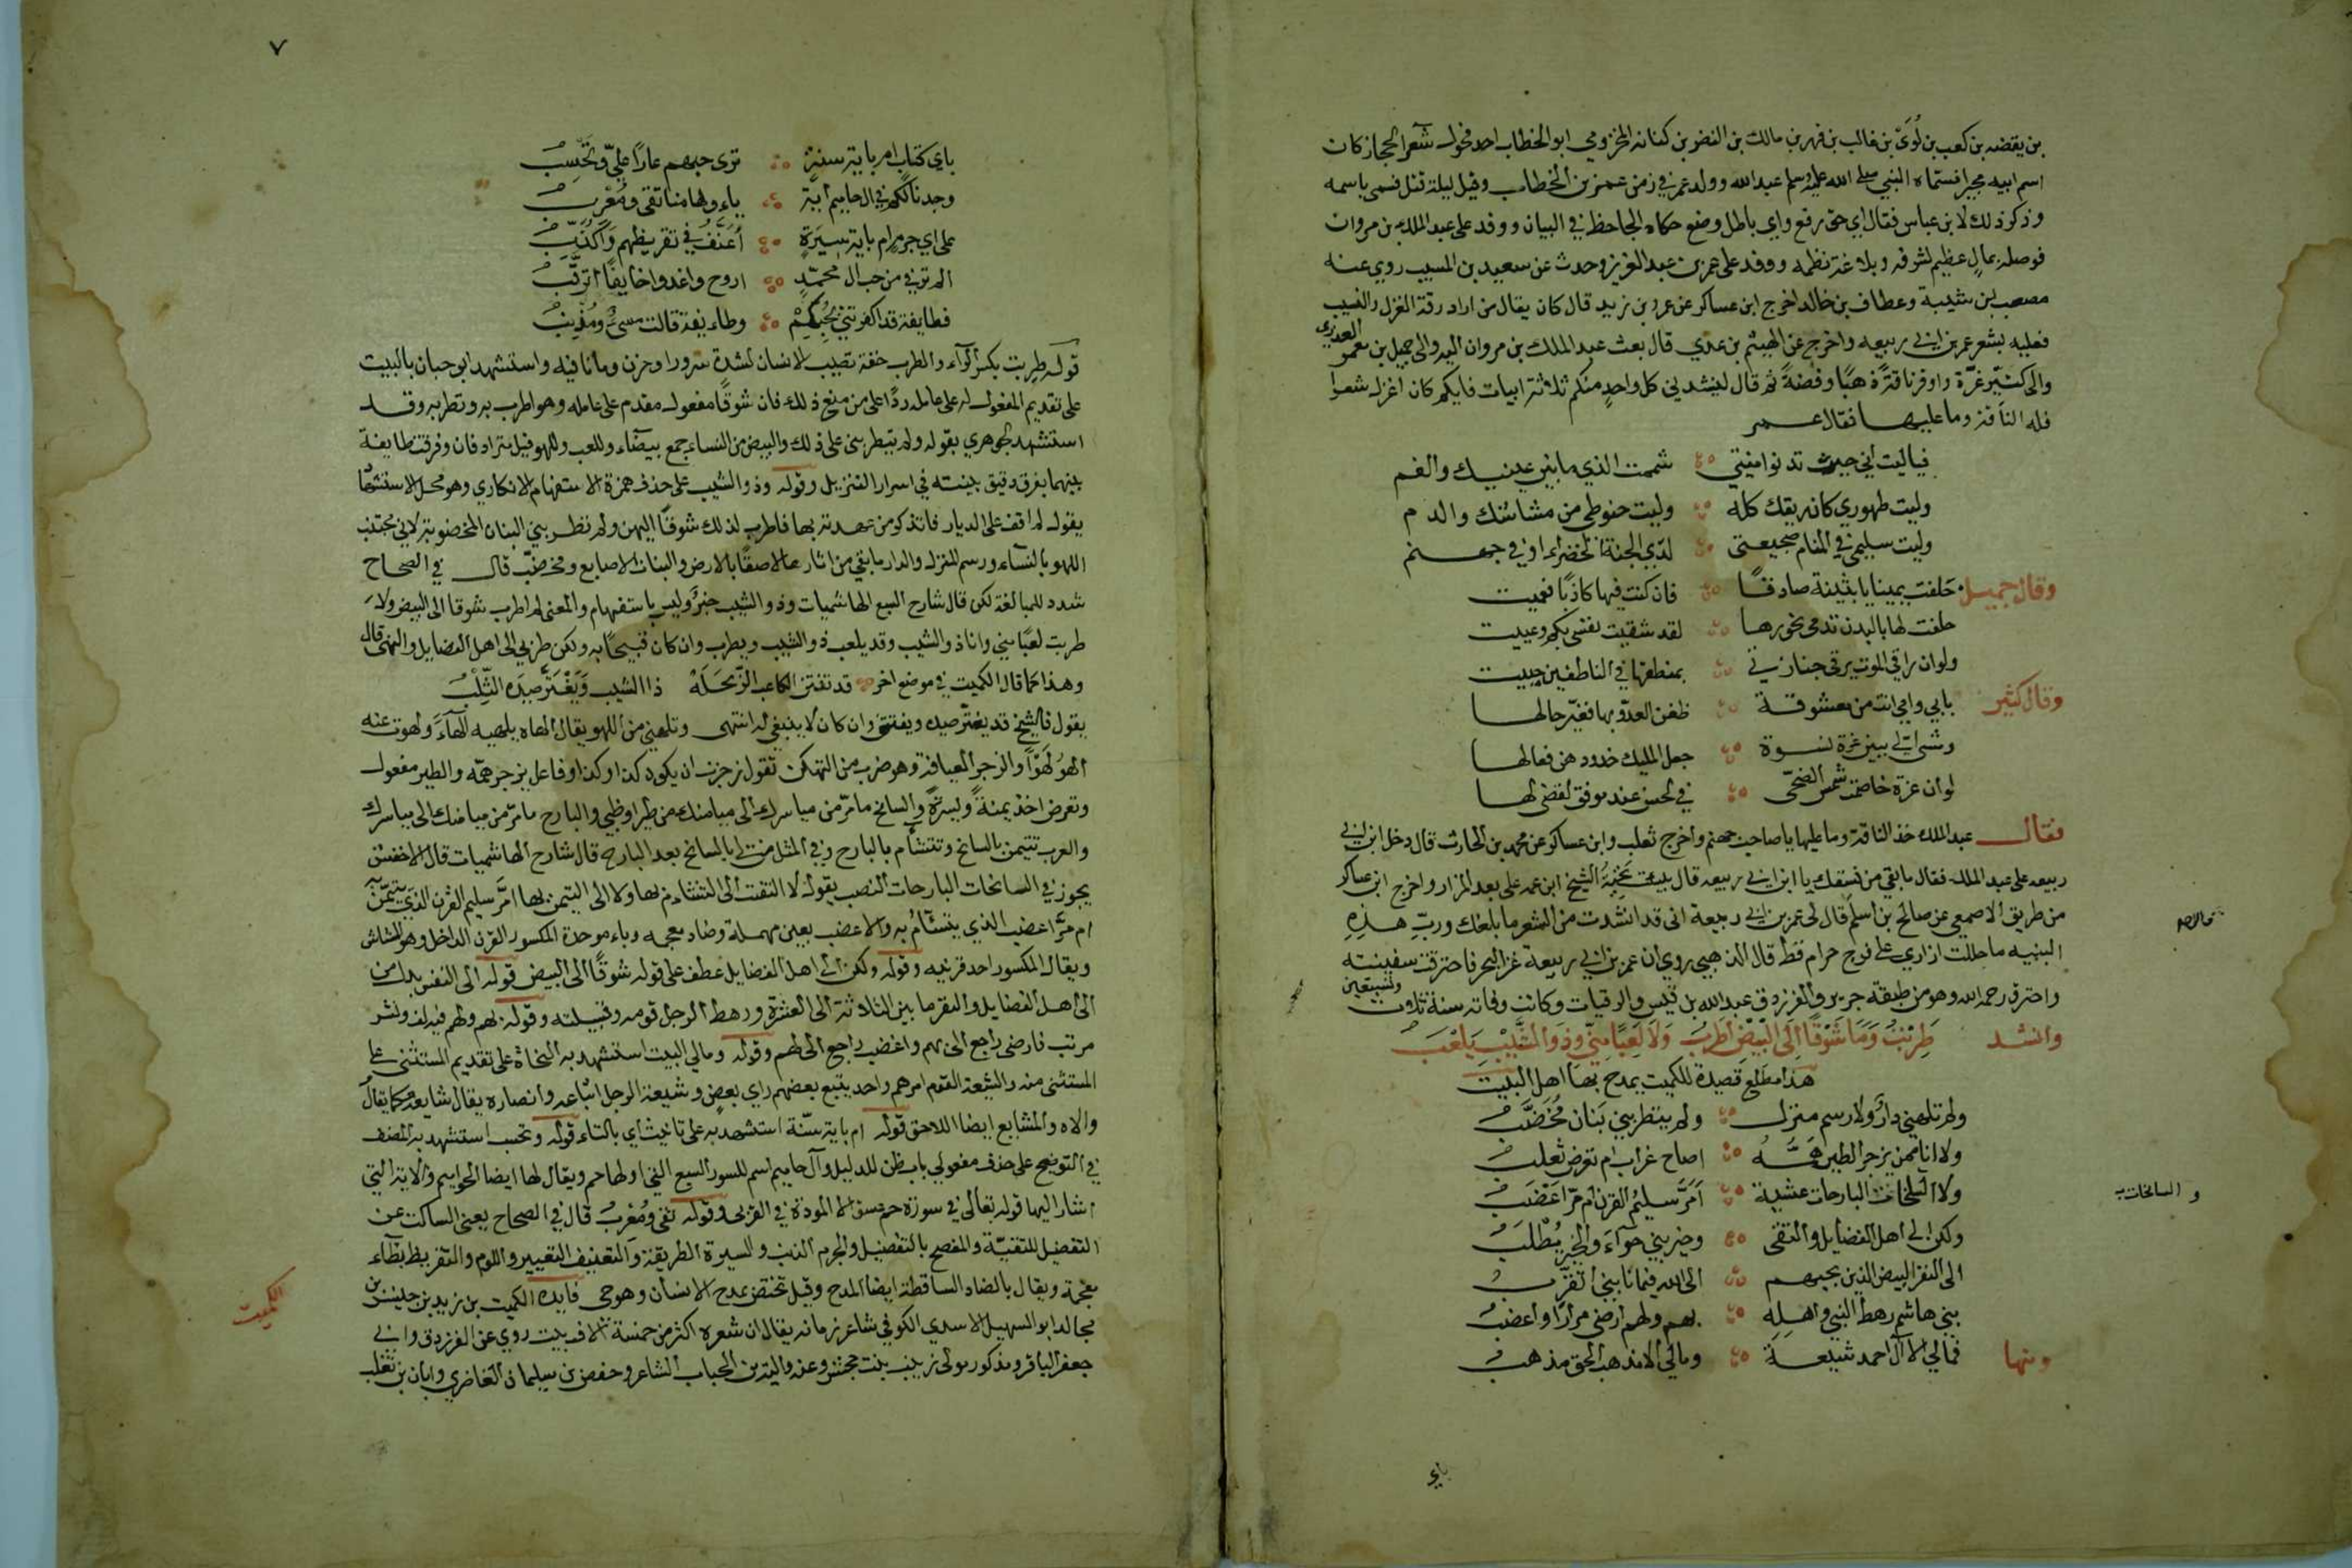 بن يقضه بن كعب بن لُوَىّ بن غالب بن فهر بن مالك بن النضر بن كنانه المخزومي ابو الخطاب احد فحول شعرآ الحجاز كان
اسم ابيه مجيرا فسماه النبي صلى الله عليه وسلم عبد الله وولد عمر في زمن عمر بن الخطاب وقيل ليلة قتل فسمى باسمه
وذكر ذلك لابن عباس فقال اي حق رفع واي باطل وضع حكاه الجاحظ في البيان ووفد على عبد الملك بن مروان
فوصله بمال عظيم لشرفه وبلاغة نظمه ووفد على عمر بن عبد العزيز وحدث عن سعيد بن المسيب روي عنه
مصعب بن شيبة وعطاف بن خالد اخرج ابن عساكر عن عمرو بن زيد قال كان يقال من اراد رقة الغزل والنسيب
فعليه بشعر عمر بن ابي ربيعه واخرج عن الهيثم بن عدي قال بعث عبد الملك بن مروان اليه والى جميل بن معمر العدرى
والى كثيّر عزّة واوقر ناقة ذهبًا وفضةً ثم قال لينشدني كل واحدٍ منكم ثلاثة ابيات فايكم كان اغزل شعرا
فله الناقة وما عليها فقال عمر
فياليت اني حيث تدنو امنيتي شممت الذي ما بين عينيك والفم
وليت طهوري كان ريقك كله وليت حنوطي من مشاشك والدم
وليت سليمى في المنام ضجيعتى لدى الجنة الخضراء او في جهنم
وقال جميل حَلفت يمينا يا بثينة صادقًا فان كنت فيها كاذبًا فعميت
حلفت لها بالبدن تدمى نحورها لقد شقيت نفسى بكم وعييت
ولو ان راقي الموت يرقى جنازتي بمنطقها في الناطقين حييت
وقال كثير بابي وامي انت من معشوقة ظفر العدوّ بها فغيّر حالها
وشى الي ببين عزة نسوة جعل المليك خدودهن فعالها
لو ان عزة خاصمت شمس الضحى في الحسن عند موفق لقضى لها
فقال عبد الملك خذ الناقة وما عليها يا صاحب جهنم واخرج ثعلب وابن عساكر عن محمد بن الحارث قال دخل ابن ابي
ربيعه على عبد الملك فقال ما بقي من فسقك يا ابن ابي ربيعه قال بئست تحية الشيخ ابن عمه على بعد المزار واخرج ابن عساكر
من طريق الاصمعي عن صالح بن اسلم قال لى عمر بن ابي ربيعة انى قد انشدت من الشعر ما بلغك وربّ هذه
البنيه ما حللت ازاري على فرج حرام قط قال الذهبي روي ان عمر بن ابي ربيعة غزا البحر فاحترقت سفينته
واحترق رحمه الله وهو من طبقة جرير والفرزدق وعبد الله بن قيس الرقيات وكانت وفاته سنة ثلاث وتسعين
وانشد طَرِبْتُ وَمَا شَوْقًا اِلَى الْبِيْضِ اَطْرَبُ وَلَا لَعِبًا مِنّي وذوَ الشَّيْبِ يَلْعَبُ
هذا مطلع قصيدة للكميت يمدح بها اهل البيت
ولم تلهني دارٌ ولا رسم منزل ولم يتطربني بَنان مُخَضَّبُ
ولا انا ممن يزجر الطير هَمُّهُ اصاح غراب ام تعرض ثعلب
ولا السانحات البارحات عشية اَمَرَّ سليمُ القرن ام مرّ اعضبُ
ولكن الى اهل الفضايل والتقى وخير بني حوآء والخير يُطْلَبُ
الى النفر البيض الذين بحبهم الى الله فيما نابني اتقرّبُ
بني هاشم رهط النبي واهلِهِ بهم ولهم ارضى مرارًا واغضبُ
ومنها فمالي الا آل احمد شيعة ومالي الا مذهب الحق مذهب
و السانحات
باي
٧
باي كتاب ام باية سنةٍ ترى حبهم عارًا عليّ وتحسِبُ
وجدنا لكم في ال حاميم اية تاولها منا تقى ومُعْرِبُ
على اي جرم ام باية سيرَةٍ اُعَنَّفُ في تقريظهم وَاُكَذَّبُ
الم ترني من حب ال محمّدٍ اروح واغدوا خايفًا اترقَّبُ
فطايفة قد اكفرتني بحُبِكُمْ وطايفة قالت مسئٌ ومُذْنِبُ
قوله طرِبت بكسر الرآء والطرب خفة تصيب الانسان لشدة سرور او حزن وما نافيه واستشهد ابو حيان بالبيت
على تقديم المفعول له على عامله ردًا على من منع ذلك فان شوقًا مفعول له مقدم على عامله وهو اطرب به وتطربه وقد
استشهد الجوهري بقوله ولم يتطربني على ذلك والبيض من النساء جمع بيضآء واللعب واللهو قيل مترادفان وفرقت طايفة
بينهما بفرق دقيق بينته في اسرار التنزيل وقوله وذو الشيب على حذف همزة الاستفهام الانكاري وهو محل الاستشهاد
يقول لم اقف على الديار فاتذكر من عهدته بها فاطرب لذلك شوقًا اليهن ولم تطربني البنان المخضوبة لاني مجتنب
اللهو بالنسآء ورسم المنزل والدار ما بقي من اثارها لاصقًا بالارض والبنان الاصابع ومخضّب قال في الصحاح
شدد للمبالغة لكن قال شارح السبع الهاشميات وذو الشيب خبرٌ وليس باستفهام والمعنى لم اطرب شوقا الى البيض ولا
طربت لعبًا مني وانا ذو الشيب وقد يلعب ذو الشيب ويطرب وان كان قبيحًا به ولكن طربي الى اهل الفضايل والنهى قال
وهذا كما قال الكميت في موضع اخر قد تفتن الكاعب الزّبحَلَهْ ذا الشيب وَيَغْتَرّ صِيدَه الثِّلْبُ
يقول فالشيخ قد يغترّ صيده ويفتتن وان كان لا ينبغي له انتهى وتلهني من اللهو يقال الهاه يلهيه الهآءً ولهوت عنه
الهوُ لَهْوًا والزجر العيافة وهو ضرب من التهكن تقول زجرت ان يكون كذا وكذا وفاعل يزجر همّه والطير مفعول
وتعرض اخذ يمنةً ويسرةً والسانح ما مرّ من مياسرك الى ميامنك من طير او ظبي والبارح ما مرّ من ميامنك الى مياسرك
والعرب تتيمن بالسانح وتتشأم بالبارح وفي المثل من لي بالسانح بعد البارح قال شارح الهاشميات قال الاخفش
يجوز في السانحات البارحات النصب يقول لا التفت الى التشاؤم بها ولا الى التيمن بها امَرَّ سليم القرن الذي يتيمّن به
ام مرَّ اعضب الذي يتشآمُ به والاعضب بعين مهملة وضاد معجمه وباء موحدة المكسور القرن الداخل وهو المشاش
ويقال المكسور احد قرنيه وقوله ولكن الى اهل الفضايل عطف على قوله شوقًا الى البيض قوله الى النفر بدل من
الى اهل الفضايل والنفر ما بين الثلاثة الى العشرة ورهط الرجل قومه وقبيلته وقوله بهم ولهم فيه لف ونشر
مرتب فارضى راجع الى بهم واغضب راجع الى لهم وقوله ومالي البيت استشهد به النحاة على تقديم المستثنى على
المستثنى منه والشيعة القوم امرهم واحد يتبع بعضهم راي بعض وشيعة الرجل اتباعه وانصاره يقال شايعه كما يقال
والاه والمشايع ايضا اللاحق قوله ام باية سنّة استشهد به على تانيث اي بالتاء قوله وتحسب استشهد به المصنف
في التوضيح على حذف مفعولي باب ظن للدليل وآل حاميم اسم للسور السبع التي اولها حم ويقال لها ايضا الحواميم والاية التي
اشار اليها قوله تعالى في سورة حم عسق الا المودة في القربى وقوله تقى ومُعْرِبُ قال في الصحاح يعنى الساكت عن
التفضيل للتقيّة والمفصح بالتفضيل والجرم الذنب والسيرة الطريقة والتعنيف التعيير واللوم والتقريظ بظآء
معجمة ويقال بالضاد الساقطة ايضا المدح وقيل تختص بمدح الانسان وهو حي فايده الكميت بن زيد بن خنيس بن
مجالد ابو السهيل الاسدي الكوفي شاعر زمانه يقال ان شعره اكثر من خمسة الاف بيت روي عن الفرزدق وابي
جعفر الباقر ومذكور مولى زينب بنت جحش وعنه والبة بن الحباب الشاعر وحفص بن سليمان الغاضري وابان بن تغلب
الكميت